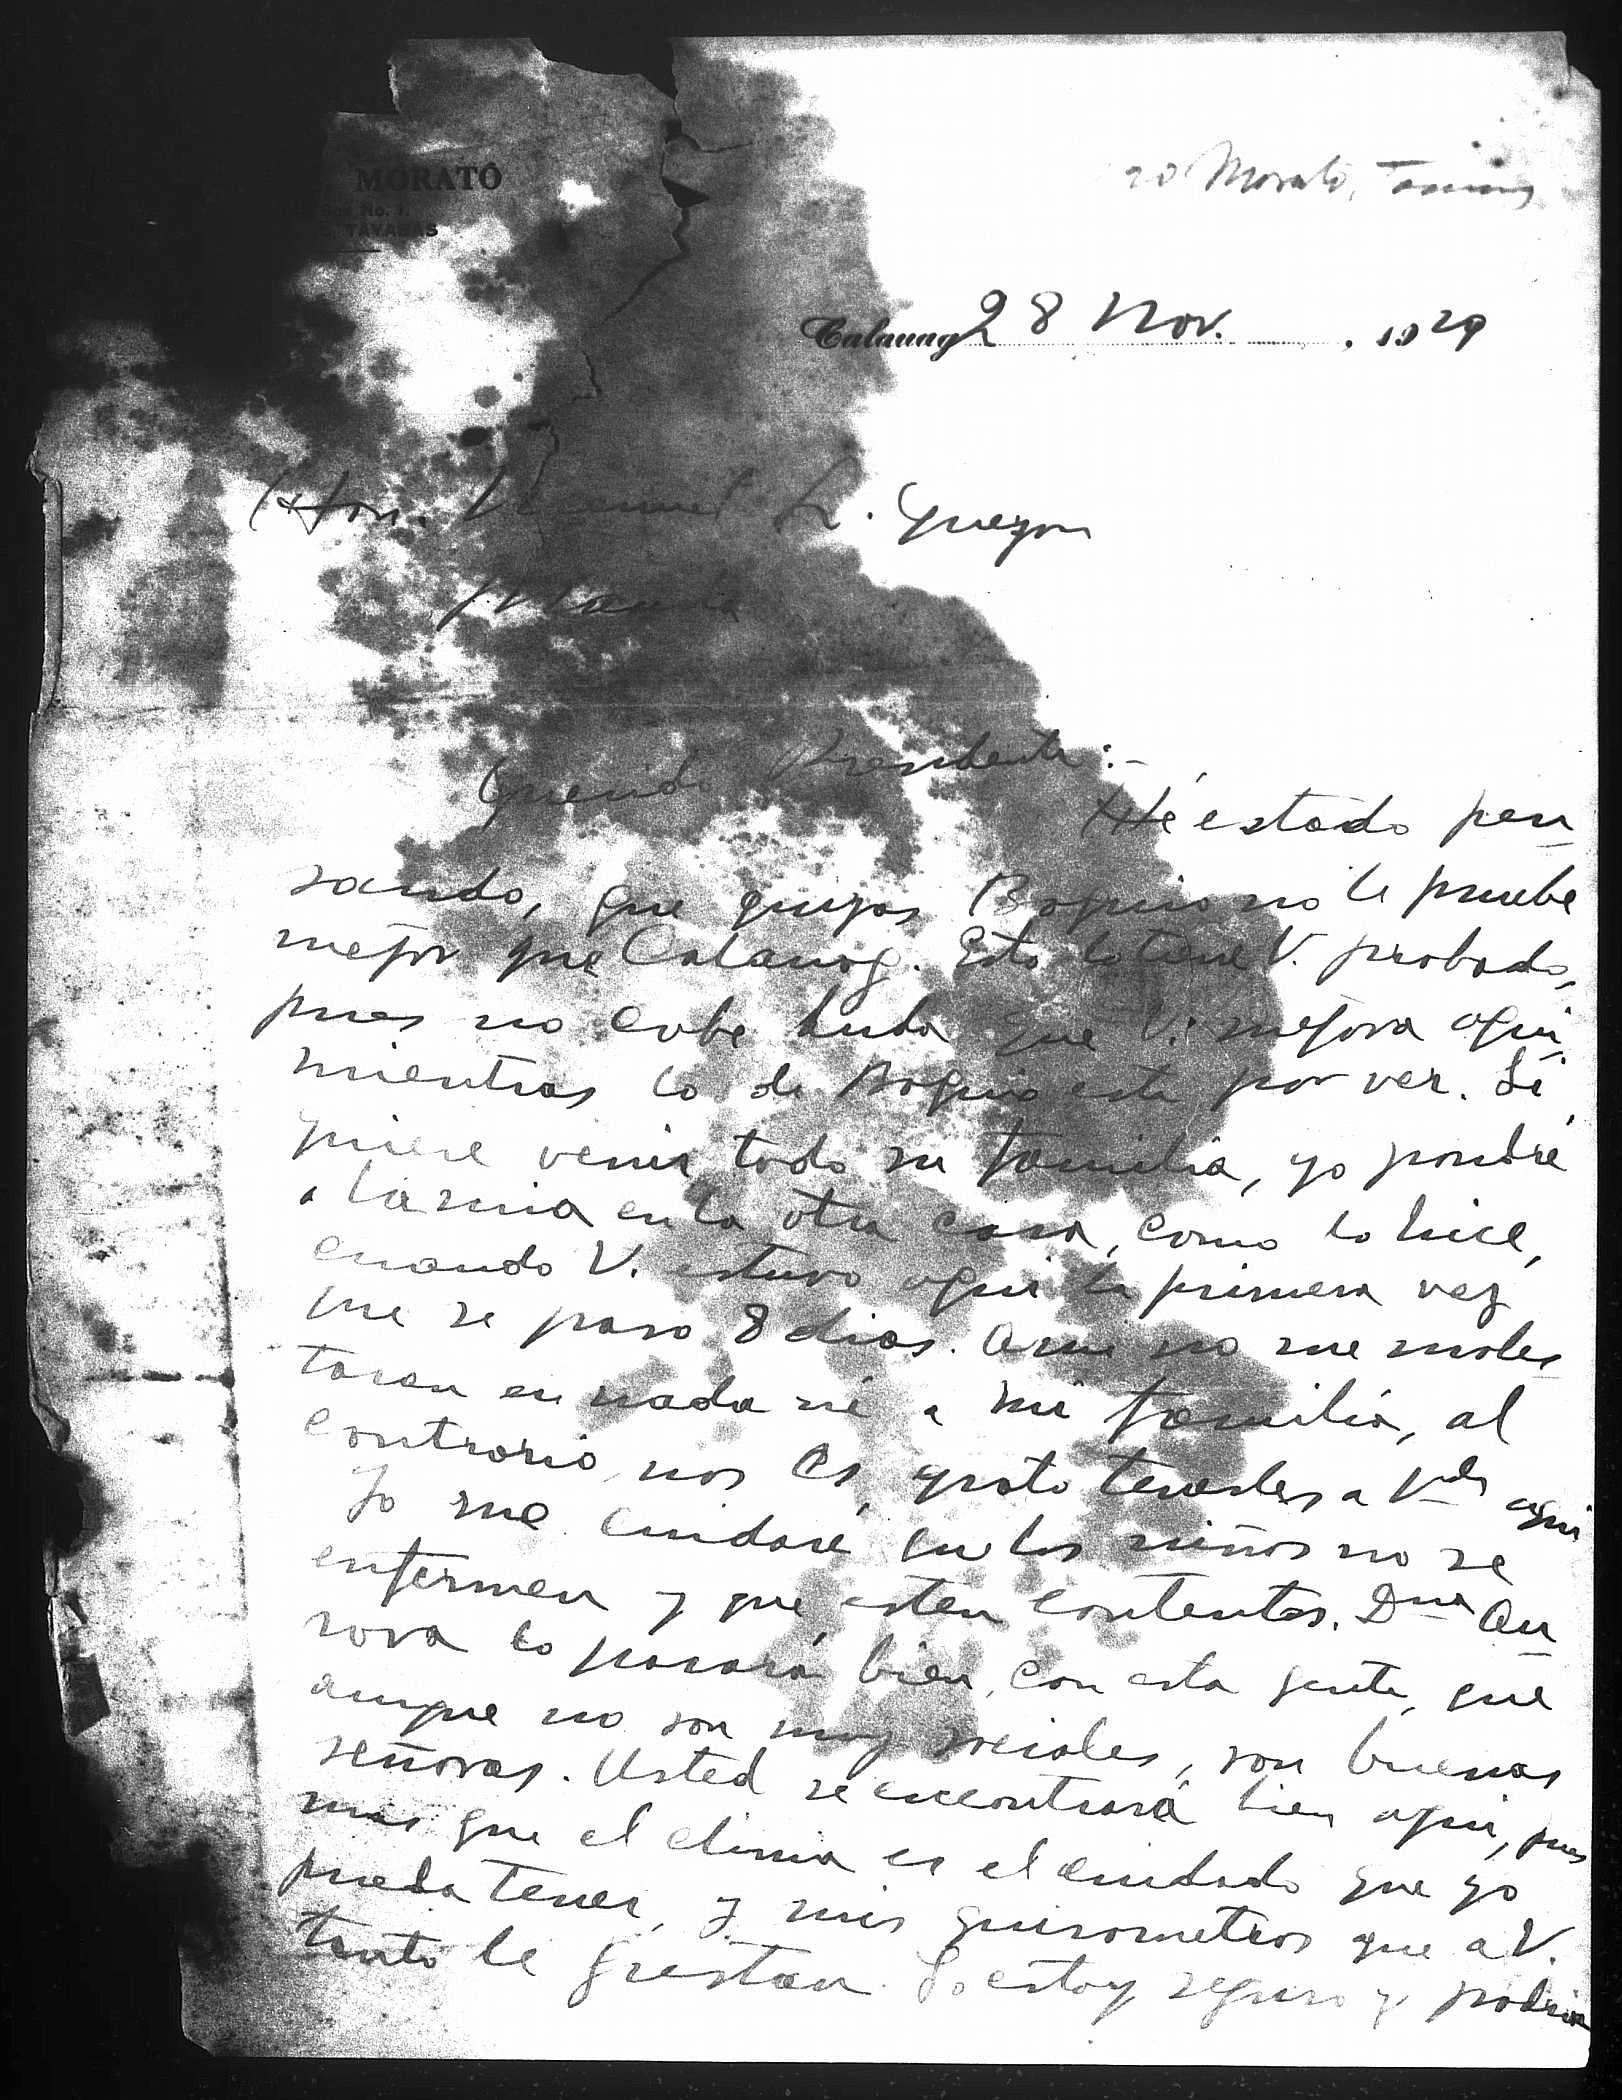 MORATÓ
Box No. 1.
TAYABAS
Morató, Tomas
Calauag 28 Nov. , 1929
Hon. Manuel L. Quezon
Manila
Querido Presidente:-
Hé estado pen
sando, que quizas Baguio no le pruebe
mejor que Calauag. Esto lo tiene V. probado,
pues no cabe duda que V. mejora aqui,
mientras lo de Baguio esta por ver. Si
quiere venir toda su familia, yo pondré
a la mia en la otra casa, como lo hice,
cuando V. estuvo aqui la primera vez
que se paso 8 dias. A mi no me moles
taran en nada ni a mi familia, al
contrario, nos es grato tenerles a Vdes aqui
Yo me cuidaré que los niños no se
enfermen y que esten contentos. Dna Au
rora lo pasará bien, con esta gente, que
aunque no son muy sociales, son buenas
señoras. Usted se encontrará bien aqui, pues
mas que el clima es el cuidado que yo
pueda tener, y mis guisometros que a V.
tanto le gustan. Yo estoy seguro y podria